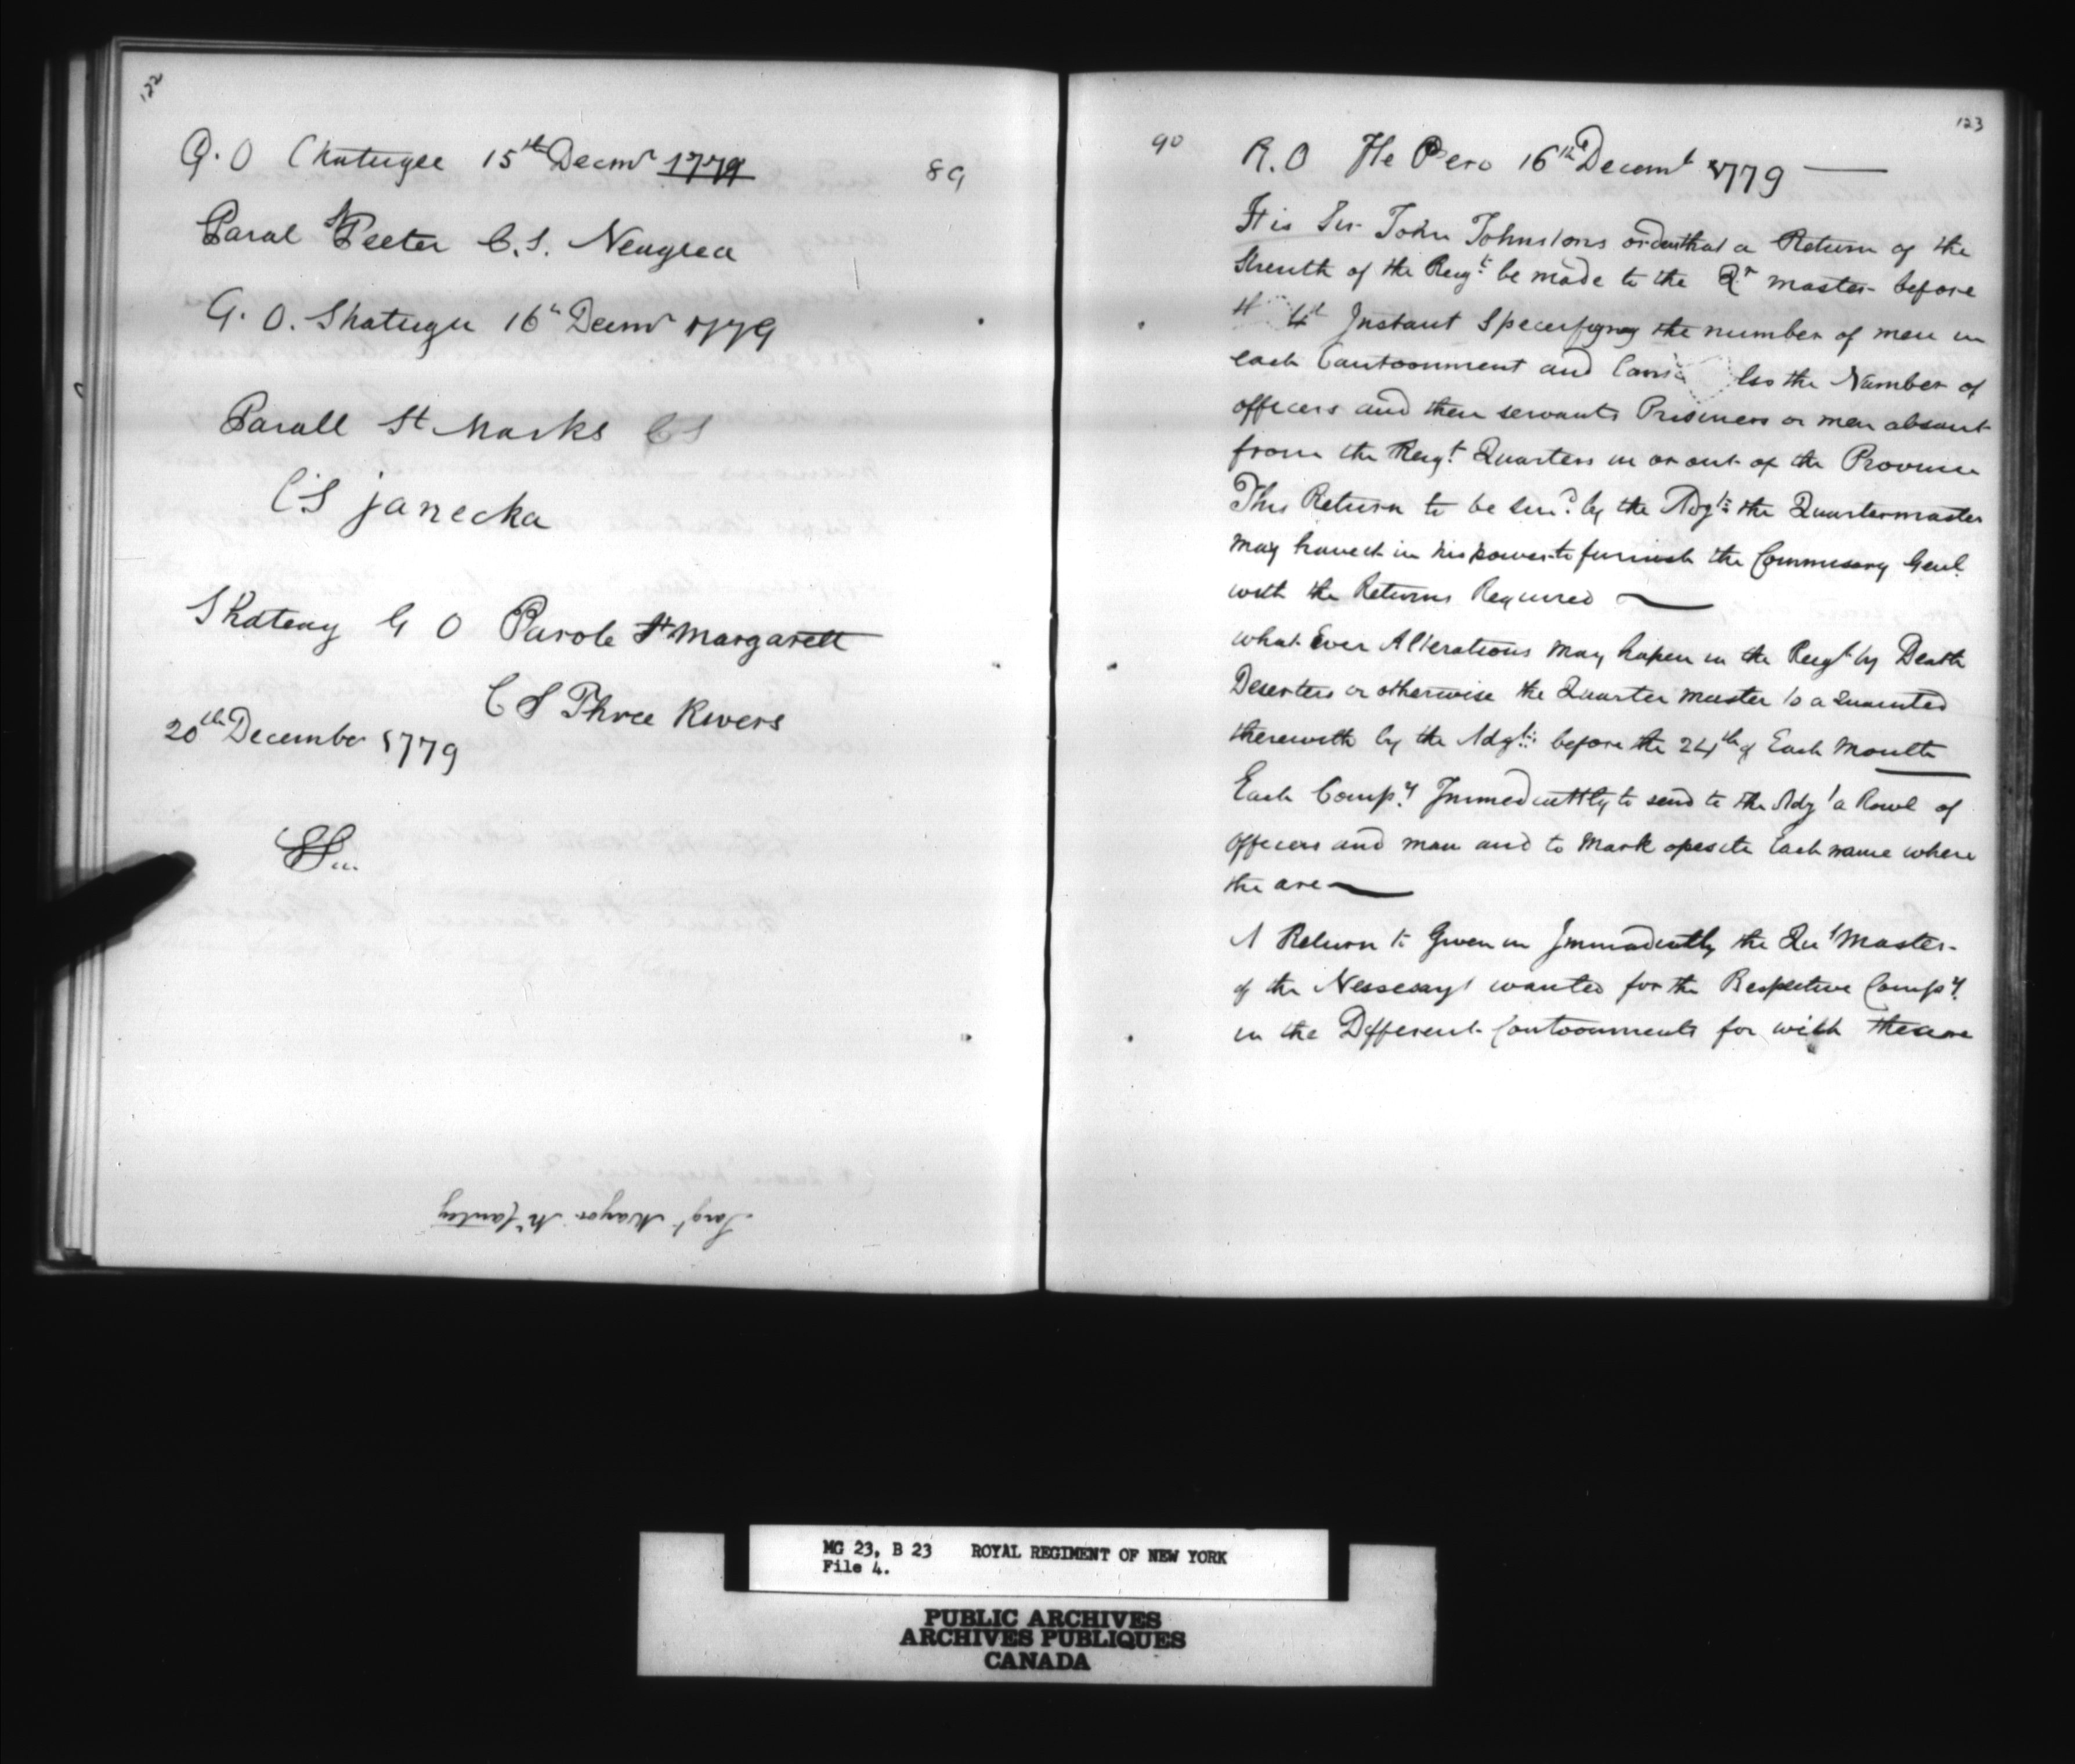 122
G. O Chatugee 15th Decmr 1779
89
Paral St Peeter C. S. Neugrea
G. O. Shatugu 16th Decmr 1779
Parall St Marks CS
CS janecka
Shateay G O Parole St Margarett
C S Three Rivers
20th December 1779
Sargt Mayor McCauley
123
90
R. O Ile Pero 16th Decembr 1779
It is Sir John Johnstons order that a Return of the
Strenth of the Reigt be made to the Qr master before
4th Instant Specerfying the number of men in
each Cantoonment and also the Number of
officers and their servants Prisiners or men absent
from the Reigt Quarters in or out of the Province
This Return to be by the Adgt the Quartermaster
may have it in his power to furnish the Commissary Genl
with the Returns Required
what Ever Alterations may hapen in the Reigt by Death
Deserters or otherwise the Quarter master to aquainted
therewith by the Adgt before the 24th of Each Month
Each Compy Immeduttly to send to the Adgt a Rowl of
officers and man and to Mark opesite Each name where
the are
A Return to Given in Immadiently the Qur Master
of the Nessesays wanted for the Respective Compy
in the Different Contoonments for wich these are
MG 23, B 23 ROYAL REGIMENT OF NEW YORK
File 4.
PUBLIC ARCHIVES
ARCHIVES PUBLIQUES
CANADA